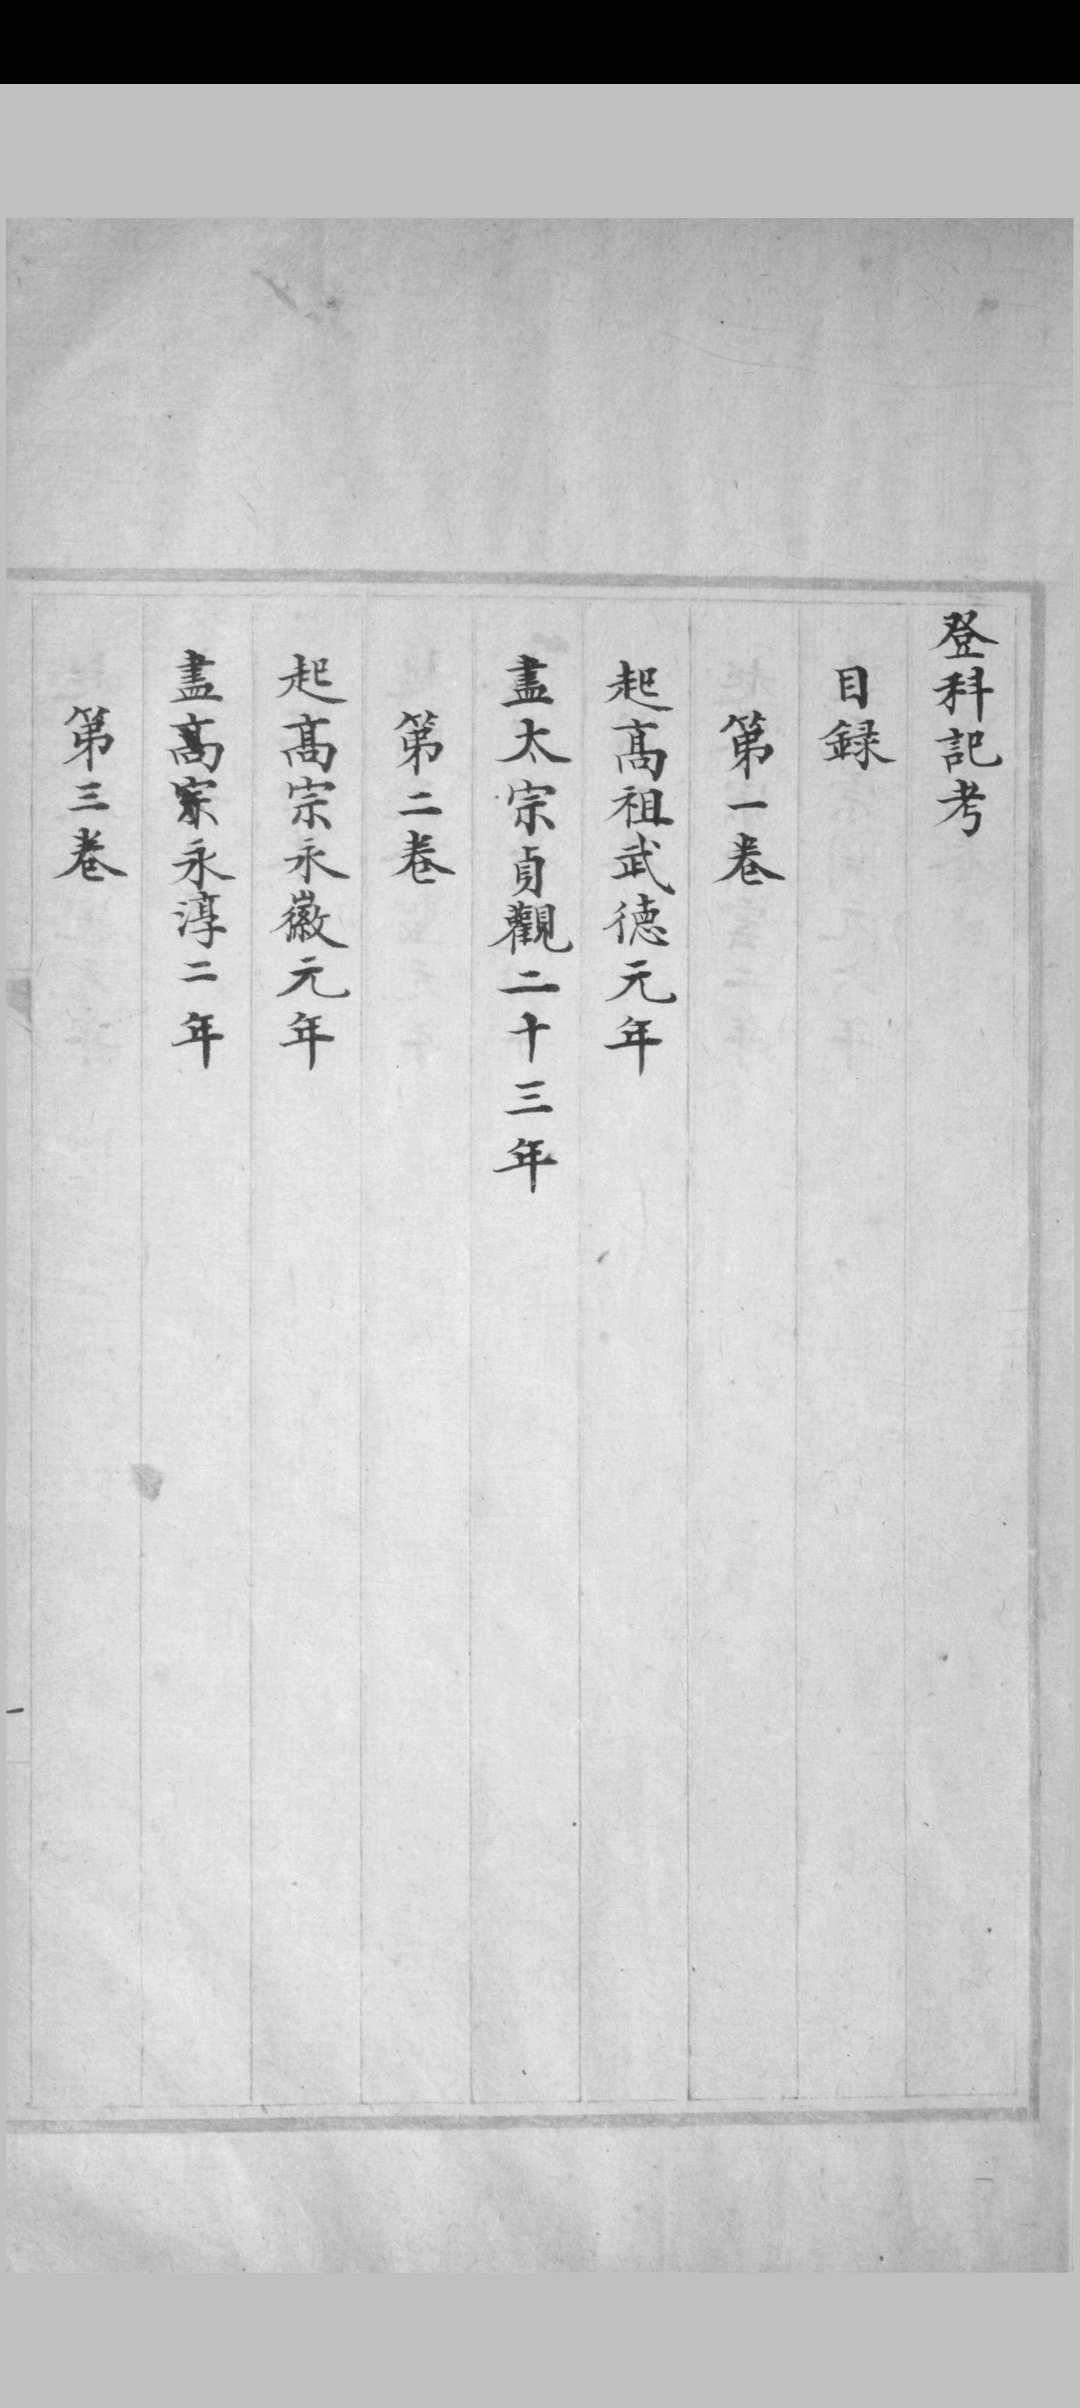 登科記考
目録
第一卷
起髙祖武德元年
盡太宗貞觀二十三年
第二卷
起髙宗永徽元年
盡髙宗永淳二年
第三卷